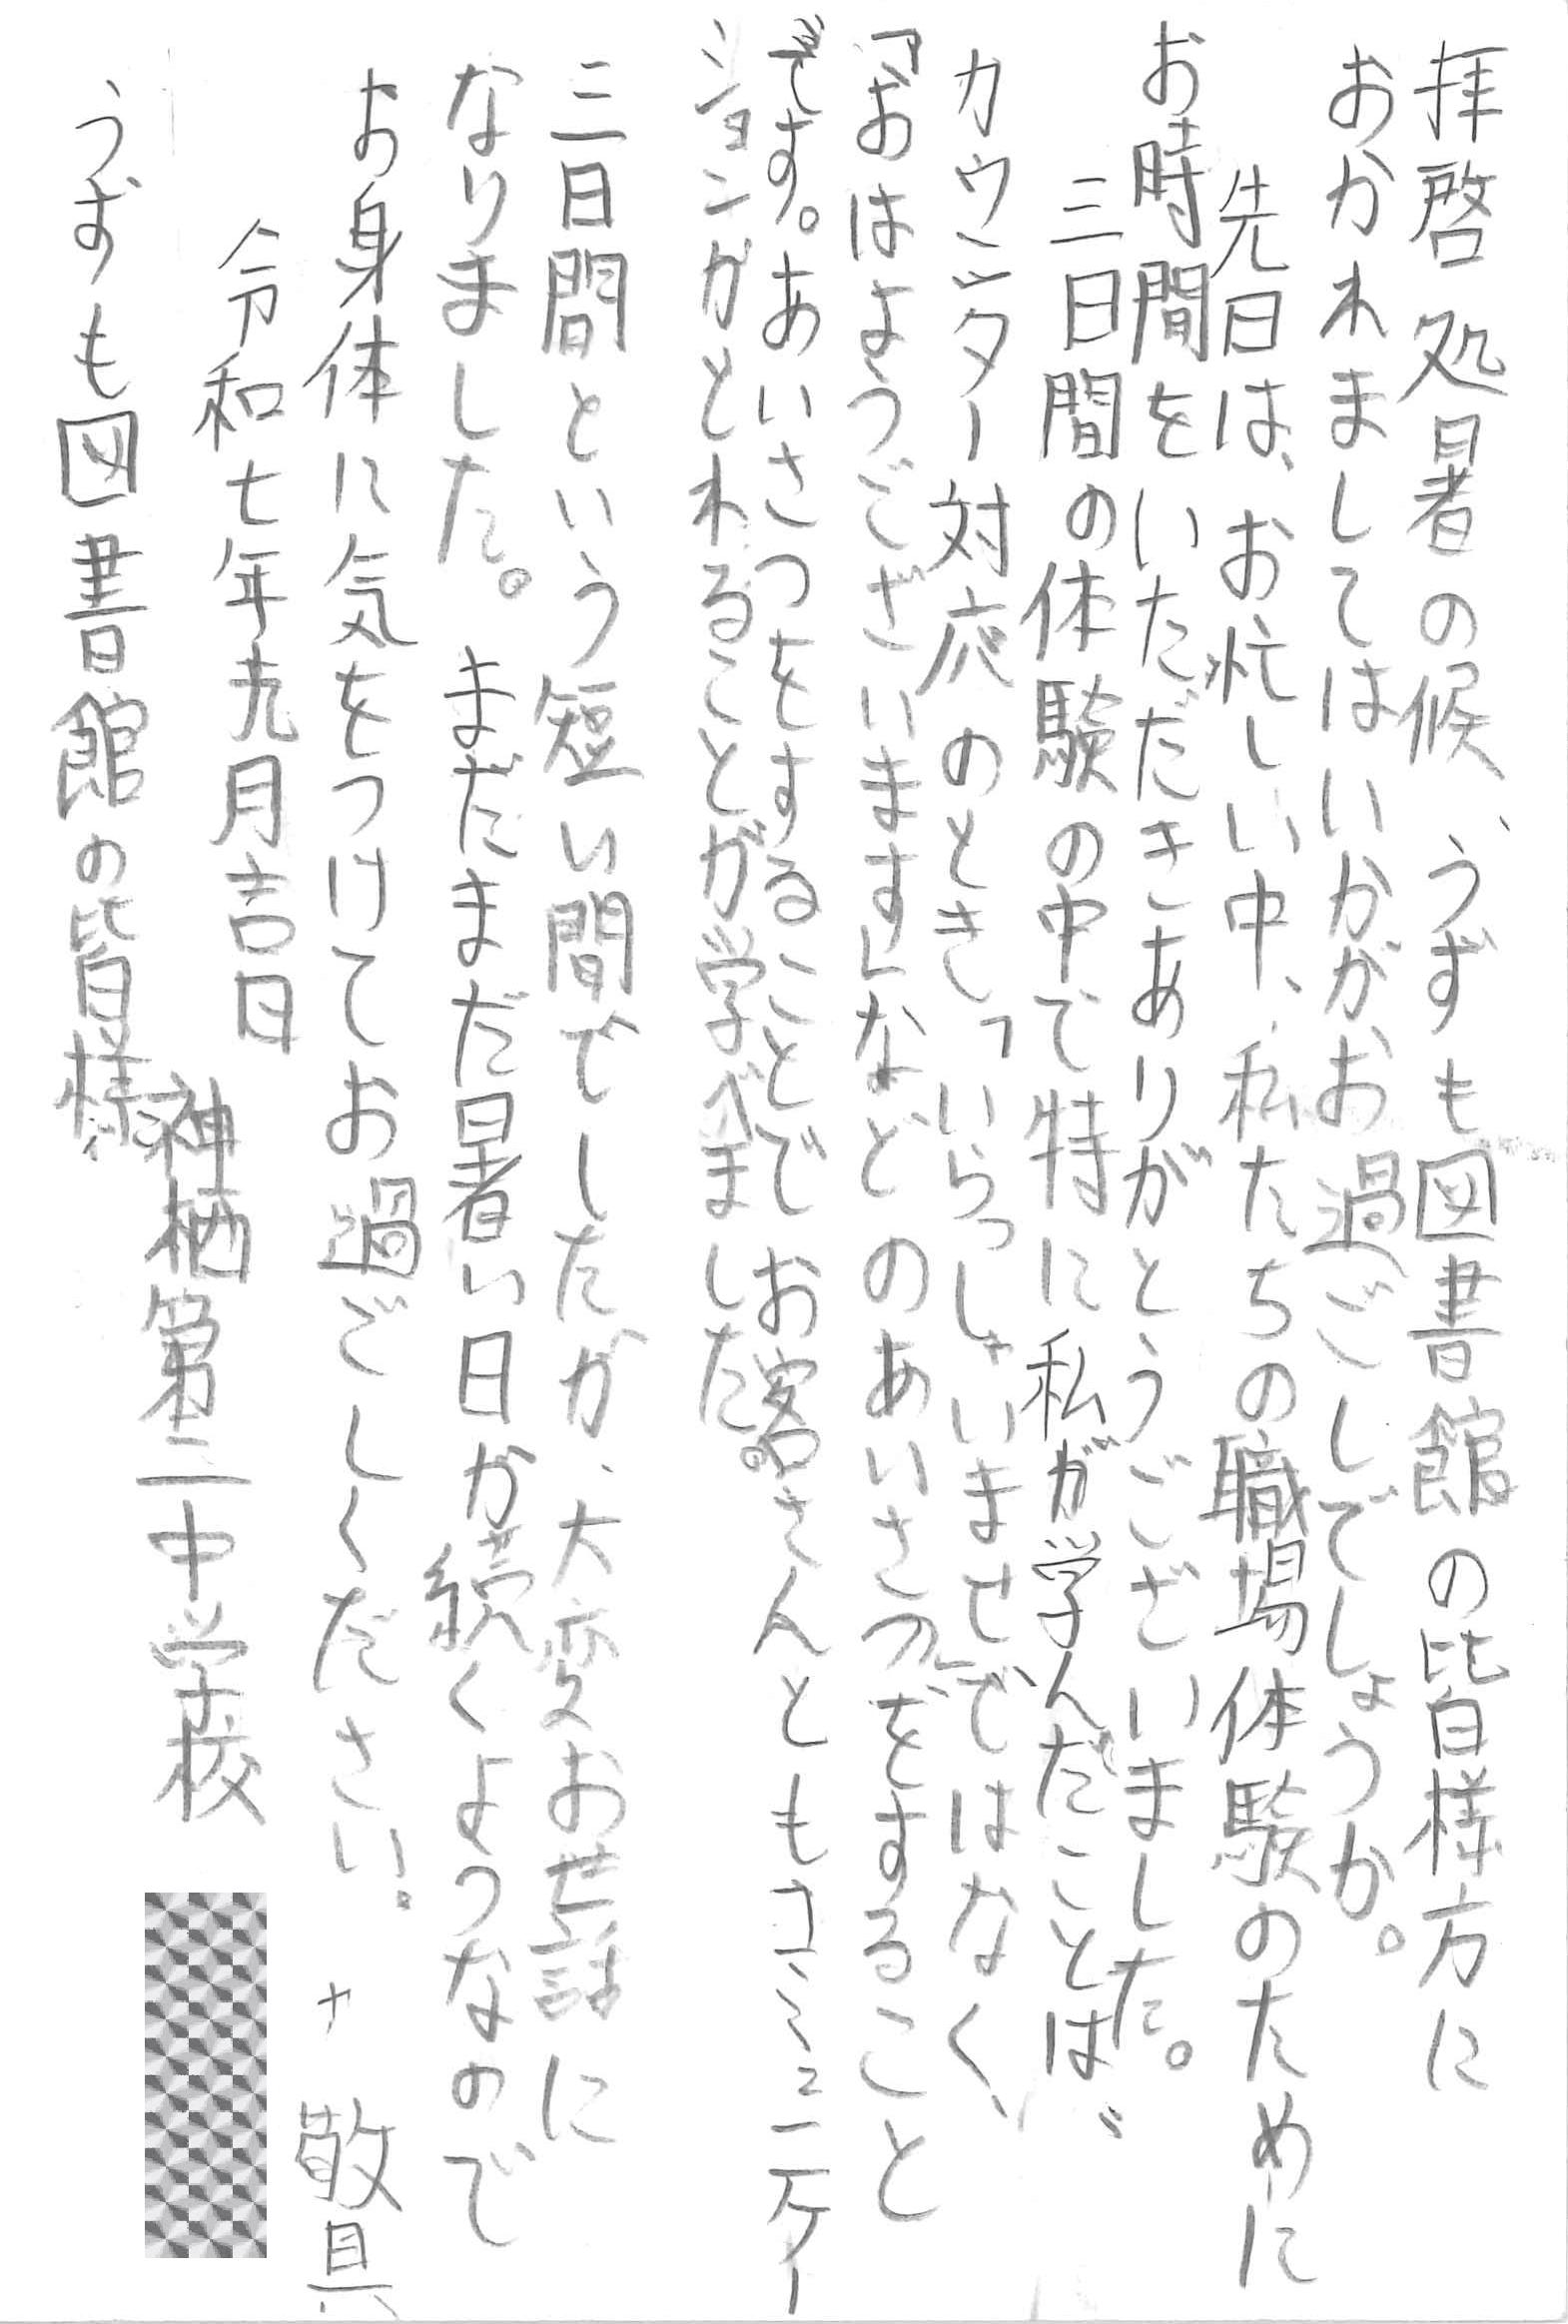 拝啓 処暑の候、うずも図書館の皆様方に
おかれましてはいかがお過ごしでしょうか。
先日は、お忙しい中、私たちの職場体験のために
お時間をいただきありがとうございました。
三日間の体験の中で特に私が学んだことは、
カウンター対応のとき「いらっしゃいませ」ではなく、
「おはようございます」などのあいさつをすること
です。あいさつをすることでお客さんともコミュニケー
ションがとれることが学べました。
三日間という短い間でしたが、大変お世話に
なりました。まだまだ暑い日が続くようなので
お身体に気をつけてお過ごしください。
敬具
令和七年九月吉日
神栖第二中学校
うずも図書館の皆様